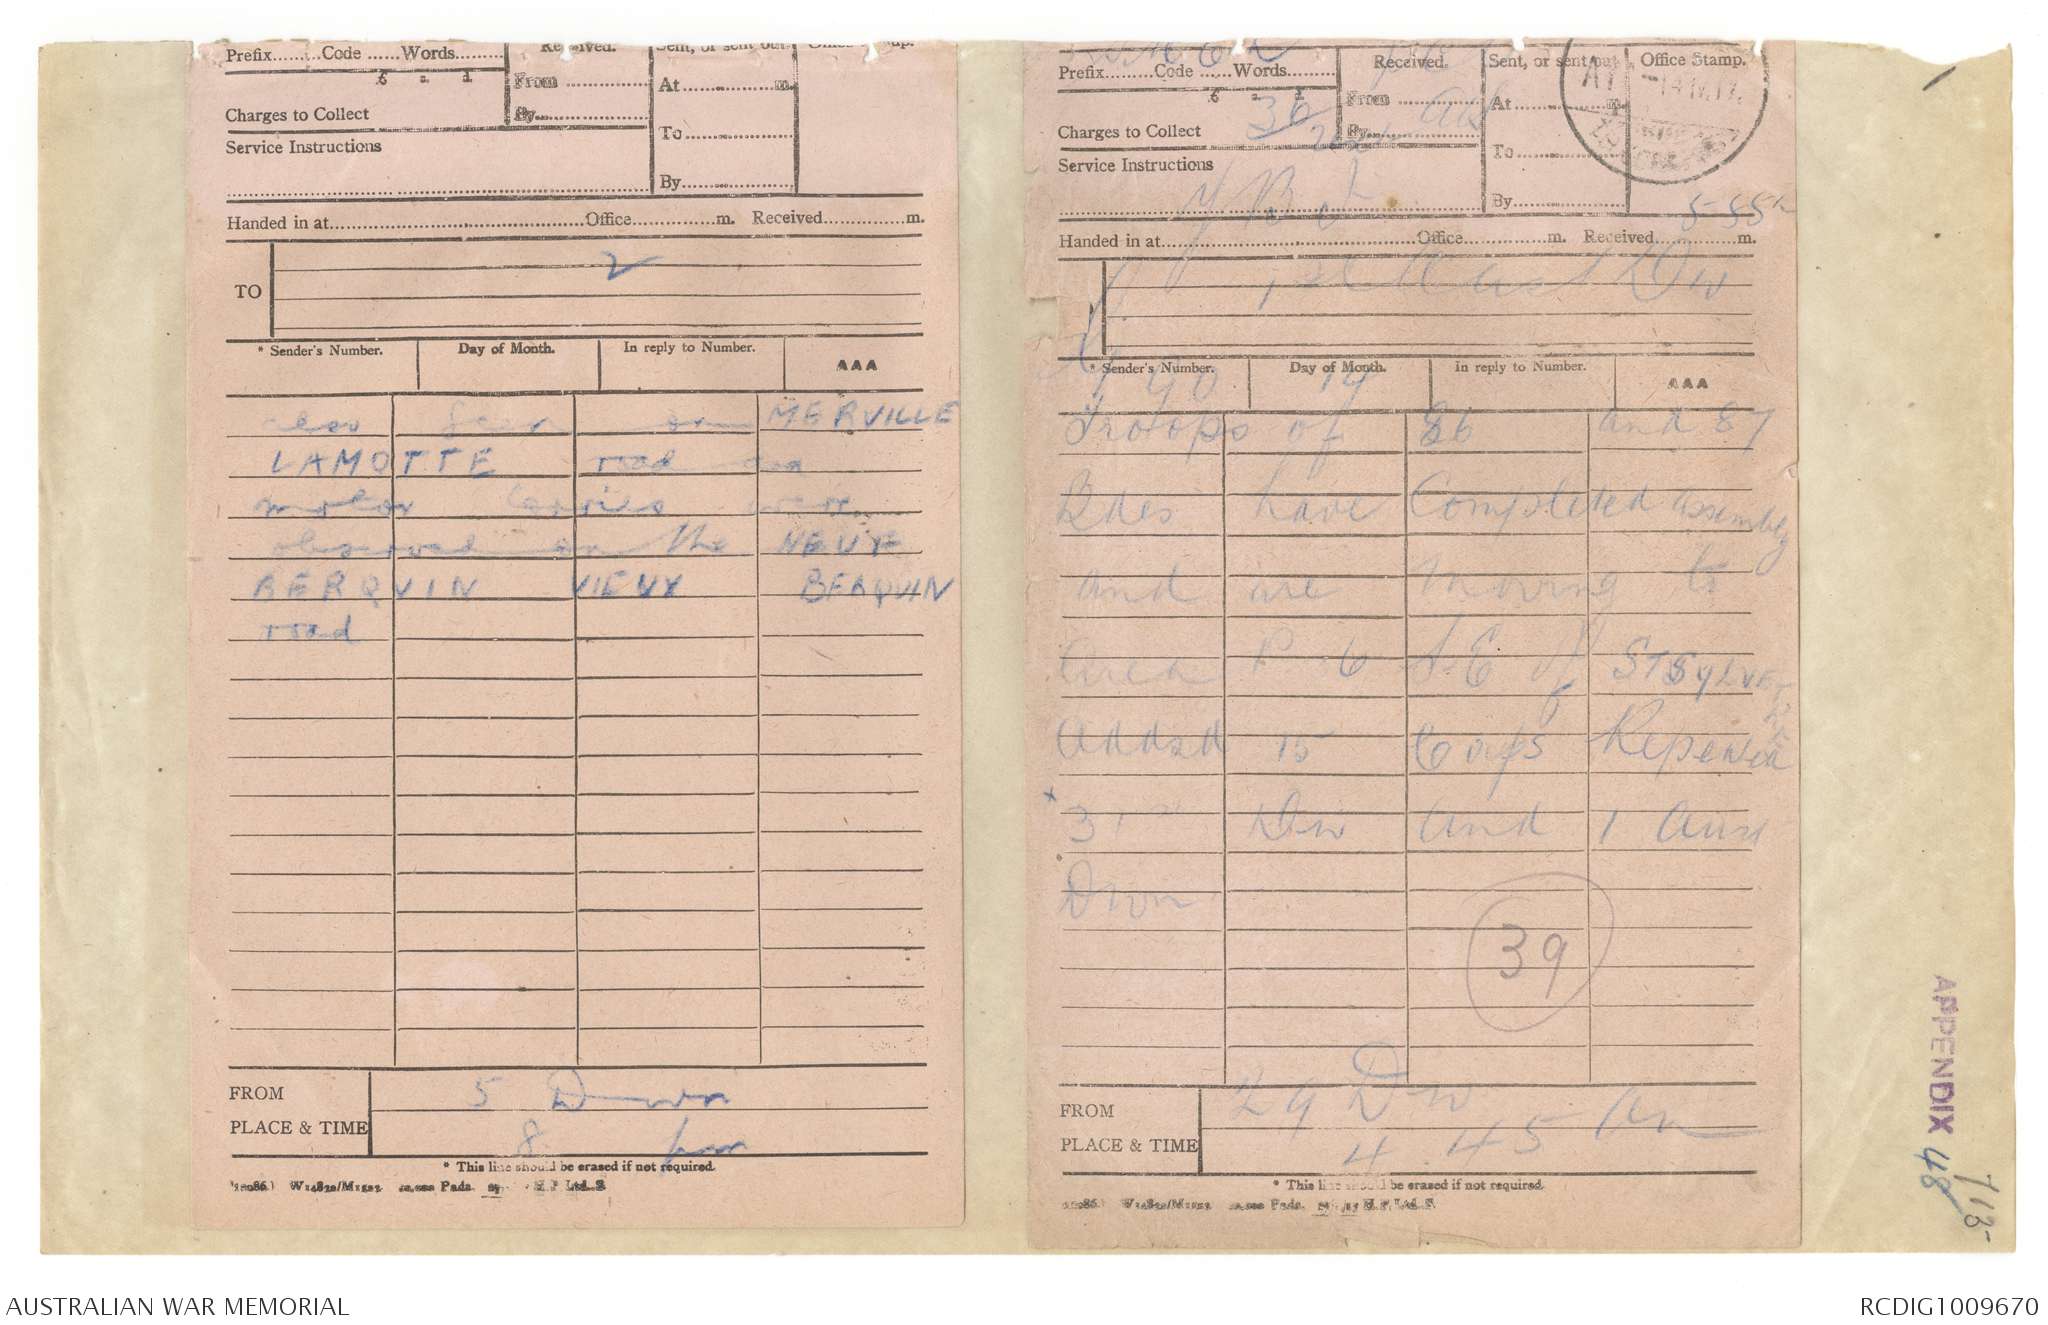 Prefix........Code ......Words.........
Received.
Sent, or sent out.
£ s. d.
From ...............
By...................
At ...................m.
Charges to Collect
To...................
Service Instructions
By...................
Handed in at.................................Office...............m. Received...............m.
2
TO
* Sender's Number.
Day of Month.
In reply to Number.
AAA
also seen on MERVILLE
LAMOTTE road aaa
motor lorries were
observed on the NEUF
BERQUIN VIEUX BERQUIN
road
FROM
5 Divn
PLACE & TIME
8 pm
* This line should be erased if not required.
Prefix........Code ......Words.........
Received.
Sent, or sent out
Office Stamp.
£ s. d.
From ...............
By...................
At ...................m.
Charges to Collect
36
To...................
Service Instructions
By...................
5-55
Handed in at.................................Office...............m. Received...............m.
TO
1st Aust Div
* Sender's Number.
Day of Month.
In reply to Number.
AAA
14
Troops of 86 and 87
Bdes have Completed assembly
and are moving to
area P 6 S.E of ST SYLVESTRE
Addsd 15 Corps Repeated
31st Div and 1 Aust
Divn
39
FROM
29 Div
PLACE & TIME
4.45 pm
* This line should be erased if not required.
APPENDIX 48
7/13
AUSTRALIAN WAR MEMORIAL
RCDIG1009670